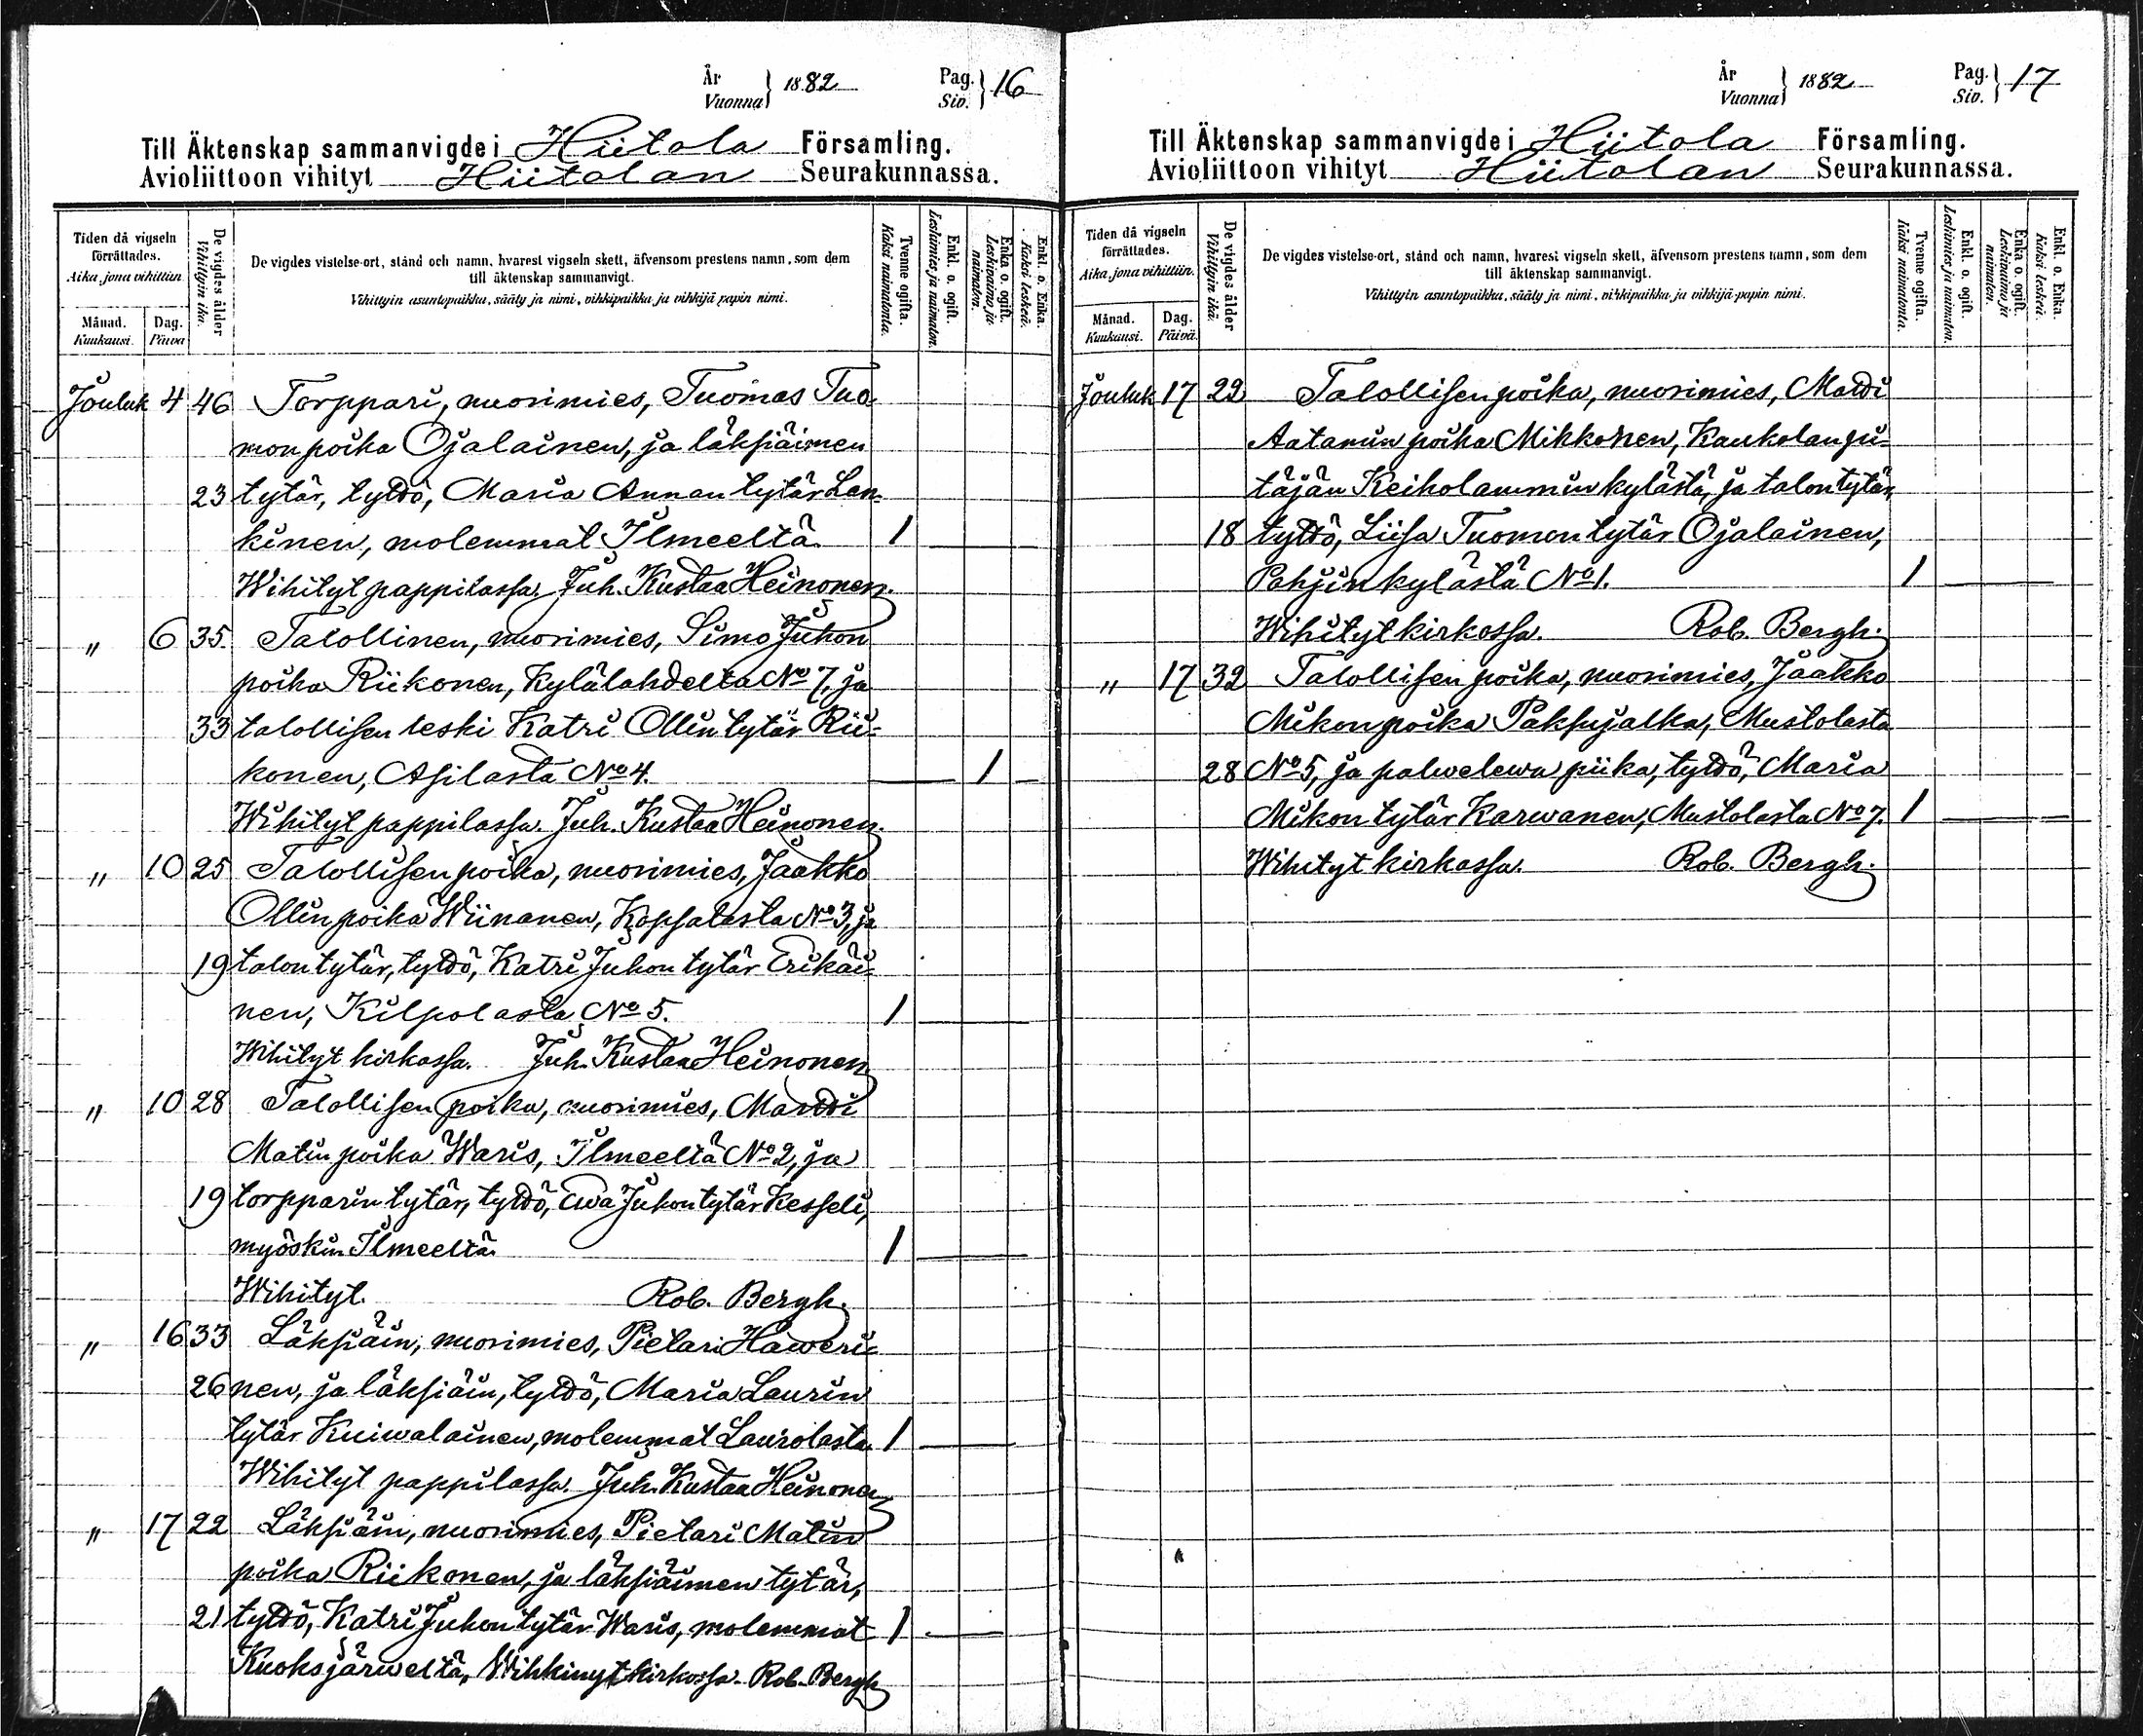 År
Vuonna } 1882
Pag.
Siv. } 16
Till Äktenskap sammanvigde i Hiitola Församling.
Avioliittoon vihityt Hiitolan Seurakunnassa.
Tiden då vigseln förrättades.
Aika, jona vihittiin.
Månad.
Kuukausi.
Dag.
Päivä
De vigdes ålder
Vihittyin ikä.
De vigdes vistelse-ort, stånd och namn, hvarest vigseln skett, äfvensom prestens namn, som dem
till äktenskap sammanvigt.
Vihittyin asuntopaikka, sääty ja nimi, vihkipaikka ja vihkijä papin nimi.
Tvenne ogifta.
Kaksi naimatonta.
Enkl. o. ogift.
Leskimies ja naimaton.
Enka o. ogift.
Leskivaimo ja naimaton.
Enkl. o. Enka.
Kaksi leskeä.
Jouluk 4 46 Torppari, nuorimies, Tuomas Tuo-
mon poika Ojalainen, ja läksiäimen
23 tytär, tyttö, Maria Annan tytär Lan-
kinen, molemmat Ilmeeltä. 1
Wihityt pappilassa. Juh. Kustaa Heinonen.
" 6 35. Talollinen, nuorimies, Simo Juhon
poika Riikonen, Kylälahdelta No 7, ja
33 talollisen leski Katri Ollin tytär Rii-
konen, Asilasta No 4. 1
Wihityt pappilassa. Juh. Kustaa Heinonen.
" 10 25 Talollisen poika, nuorimies, Jaakko
Ollin poika Wiinanen, Kopsalasta No 3, ja
19 talon tytär, tyttö, Katri Juhon tytär Erikäi-
nen, Kilpolasta No 5. 1
Wihityt kirkossa. Juh. Kustaa Heinonen
" 10 28 Talollisen poika, nuorimies, Martti
Matin poika Waris, Ilmeeltä No 2, ja
19 torpparin tytär, tyttö, Ewa Juhon tytär Kesseli,
myöskin Ilmeeltä 1
Wihityt. Rob. Bergh.
" 16 33 Läksiäin, nuorimies, Pietari Haweri-
26 nen, ja läksiäin, tyttö, Maria Laurin
tytär Kuiwalainen, molemmat Laurolasta 1
Wihityt pappilassa. Juh. Kustaa Heinonen
" 17 22 Läksiäin, nuorimies, Pietari Matin
poika Riikonen, ja läksiäimen tytär,
21 tyttö, Katri Juhon tytär Waris, molemmat 1
Kuoksjärweltä, Wihkinyt kirkossa. Rob. Bergh
År
Vuonna } 1882
Pag.
Siv. } 17
Till Äktenskap sammanvigde i Hiitola Församling.
Avioliittoon vihityt Hiitolan Seurakunnassa.
Tiden då vigseln förrättades.
Aika, jona vihittiin.
Månad.
Kuukausi.
Dag.
Päivä.
De vigdes ålder
Vihittyin ikä.
De vigdes vistelse-ort, stånd och namn, hvarest vigseln skett, äfvensom prestens namn, som dem
till äktenskap sammanvigt.
Vihittyin asuntopaikka, sääty ja nimi, vihkipaikka ja vihkijä-papin nimi.
Tvenne ogifta.
Kaksi naimatonta.
Enkl. o. ogift.
Leskimies ja naimaton.
Enka o. ogift.
Leskivaimo ja naimaton.
Enkl. o. Enka.
Kaksi leskeä.
Jouluk 17 22 Talollisen poika, nuorimies, Matti
Aatamin poika Mikkonen, Kaukolan pi-
täjän Keiholammin kylästä, ja talon tytär,
18 tyttö, Liisa Tuomon tytär Ojalainen,
Pohjin kylästä No 1. 1
Wihityt kirkossa. Rob. Bergh.
" 17 32 Talollisen poika, nuorimies, Jaakko
Mikon poika Paksujalka, Mustolasta
28 No 5, ja palwelewa piika, tyttö, Maria
Mikon tytär Karwanen, Mustolasta No 7. 1
Wihityt kirkossa. Rob. Bergh.